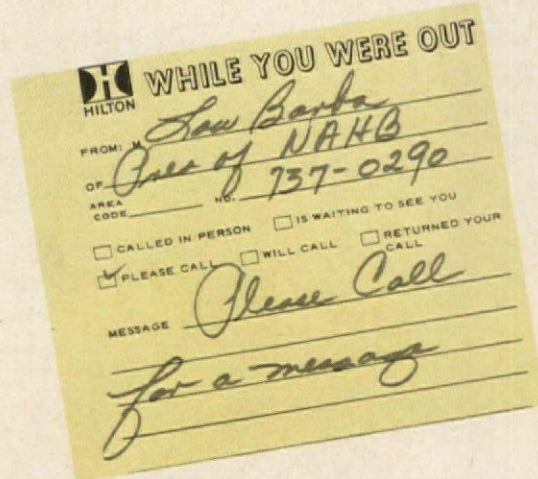 H
HILTON
WHILE YOU WERE OUT
FROM: M Lou Barba
OF Pres of NAHB
AREA CODE NO. 737-0290
CALLED IN PERSON IS WAITING TO SEE YOU
PLEASE CALL WILL CALL RETURNED YOUR CALL
MESSAGE Please Call
for a message